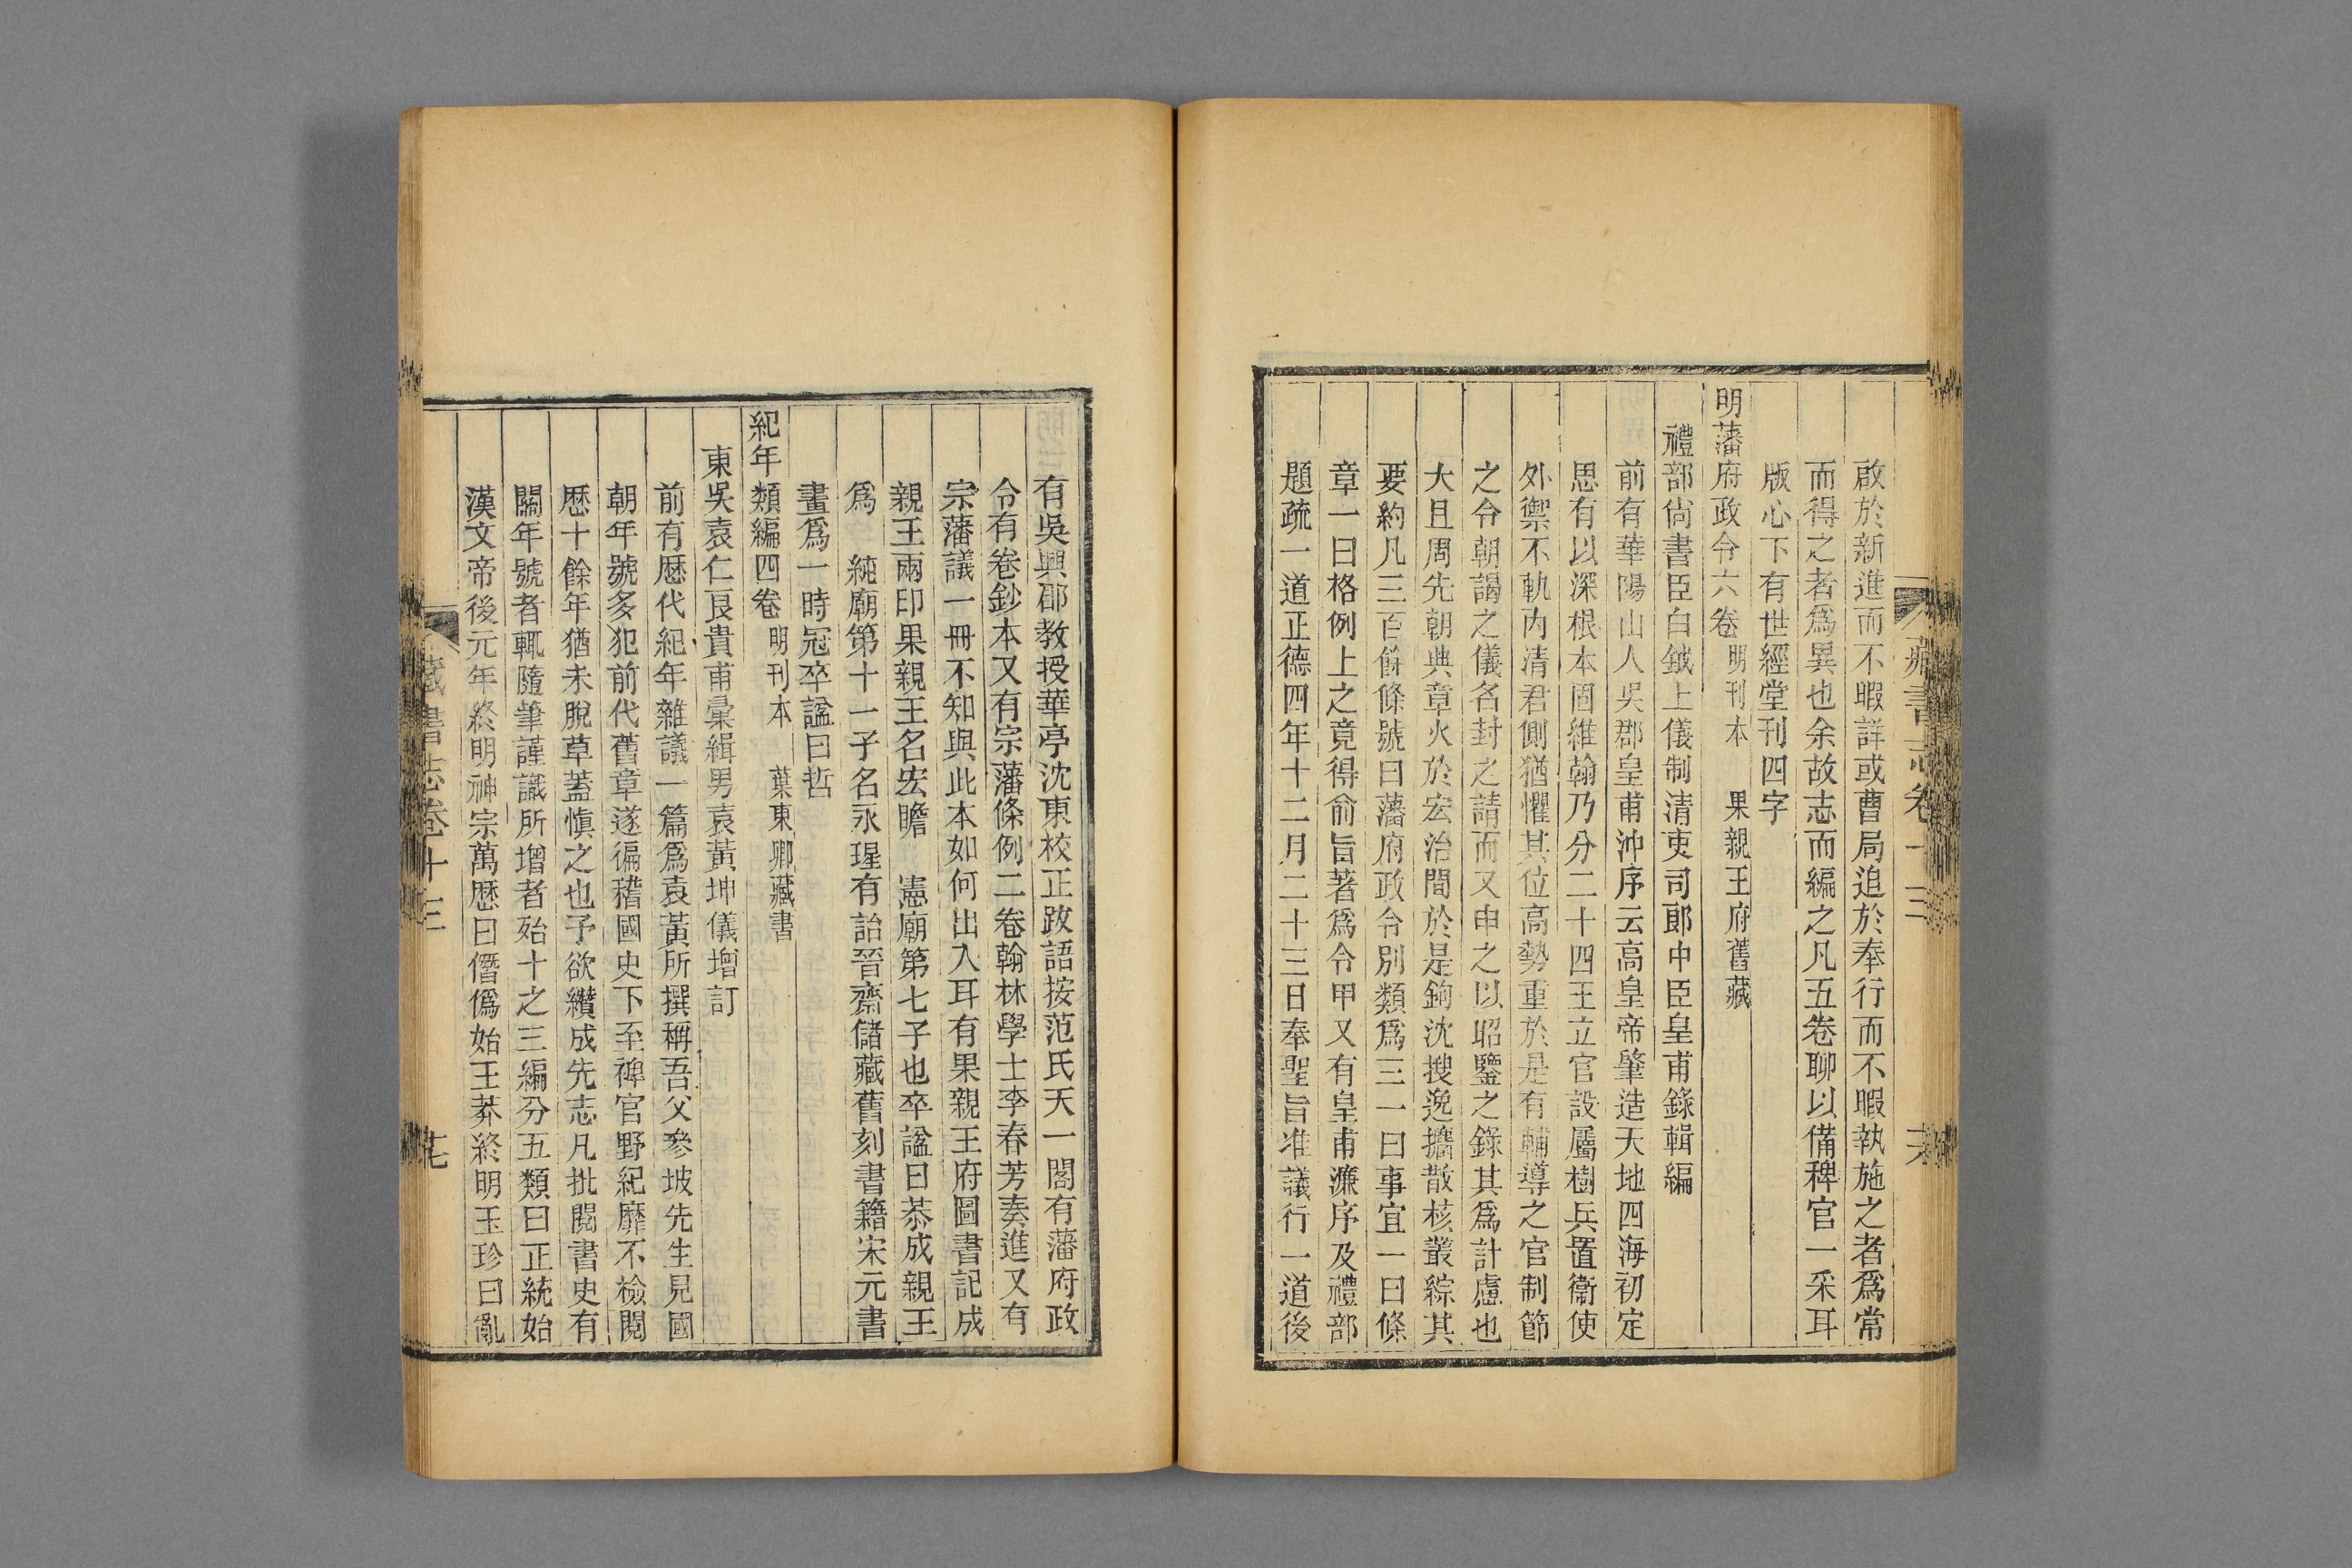 藏書志卷十三
啟於新進而不暇詳或曹局追於奉行而不暇執施之者爲常
而得之者爲異也余故志而編之凡五卷聊以備稗官一采耳
版心下有世經堂刊四字
明藩府政令六卷 明刊本 果親王府舊藏
禮部尙書臣白鉞上儀制清吏司郞中臣皇甫錄輯編
前有華陽山人吳郡皇甫沖序云高皇帝肇造天地四海初定
思有以深根本固維翰乃分二十四王立官設屬樹兵置衞使
外禦不軌内清君側猶懼其位高勢重於是有輔導之官制節
之令朝謁之儀名封之請而又申之以昭鑒之錄其爲計慮也
大且周先朝典章火於宏治間於是鉤沈搜逸攟散核叢綜其
要約凡三百餘條號曰藩府政令別類爲三一曰事宜一曰條
章一曰格例上之竟得俞旨著爲令甲又有皇甫濂序及禮部
題疏一道正德四年十二月二十三日奉聖旨准議行一道後
有吳興郡教授華亭沈東校正跋語按范氏天一閣有藩府政
令有卷鈔本又有宗藩條例二卷翰林學士李春芳奏進又有
宗藩議一冊不知與此本如何出入耳有果親王府圖書記成
親王兩印果親王名宏瞻 憲廟第七子也卒諡曰恭成親王
爲 純廟第十一子名永瑆有詒晉齋儲藏舊刻書籍宋元書
畫爲一時冠卒諡曰哲
紀年類編四卷 明刊本 葉東卿藏書
東吳袁仁良貴甫彙緝男袁黃坤儀增訂
前有歷代紀年雜議一篇爲袁黃所撰稱吾父參坡先生見國
朝年號多犯前代舊章遂徧稽國史下至稗官野紀靡不檢閱
歷十餘年猶未脫草蓋愼之也予欲纘成先志凡批閱書史有
關年號者輒隨筆謹識所增者殆十之三編分五類曰正統始
漢文帝後元年終明神宗萬歷曰僭僞始王莽終明玉珍曰亂
藏書志卷十三